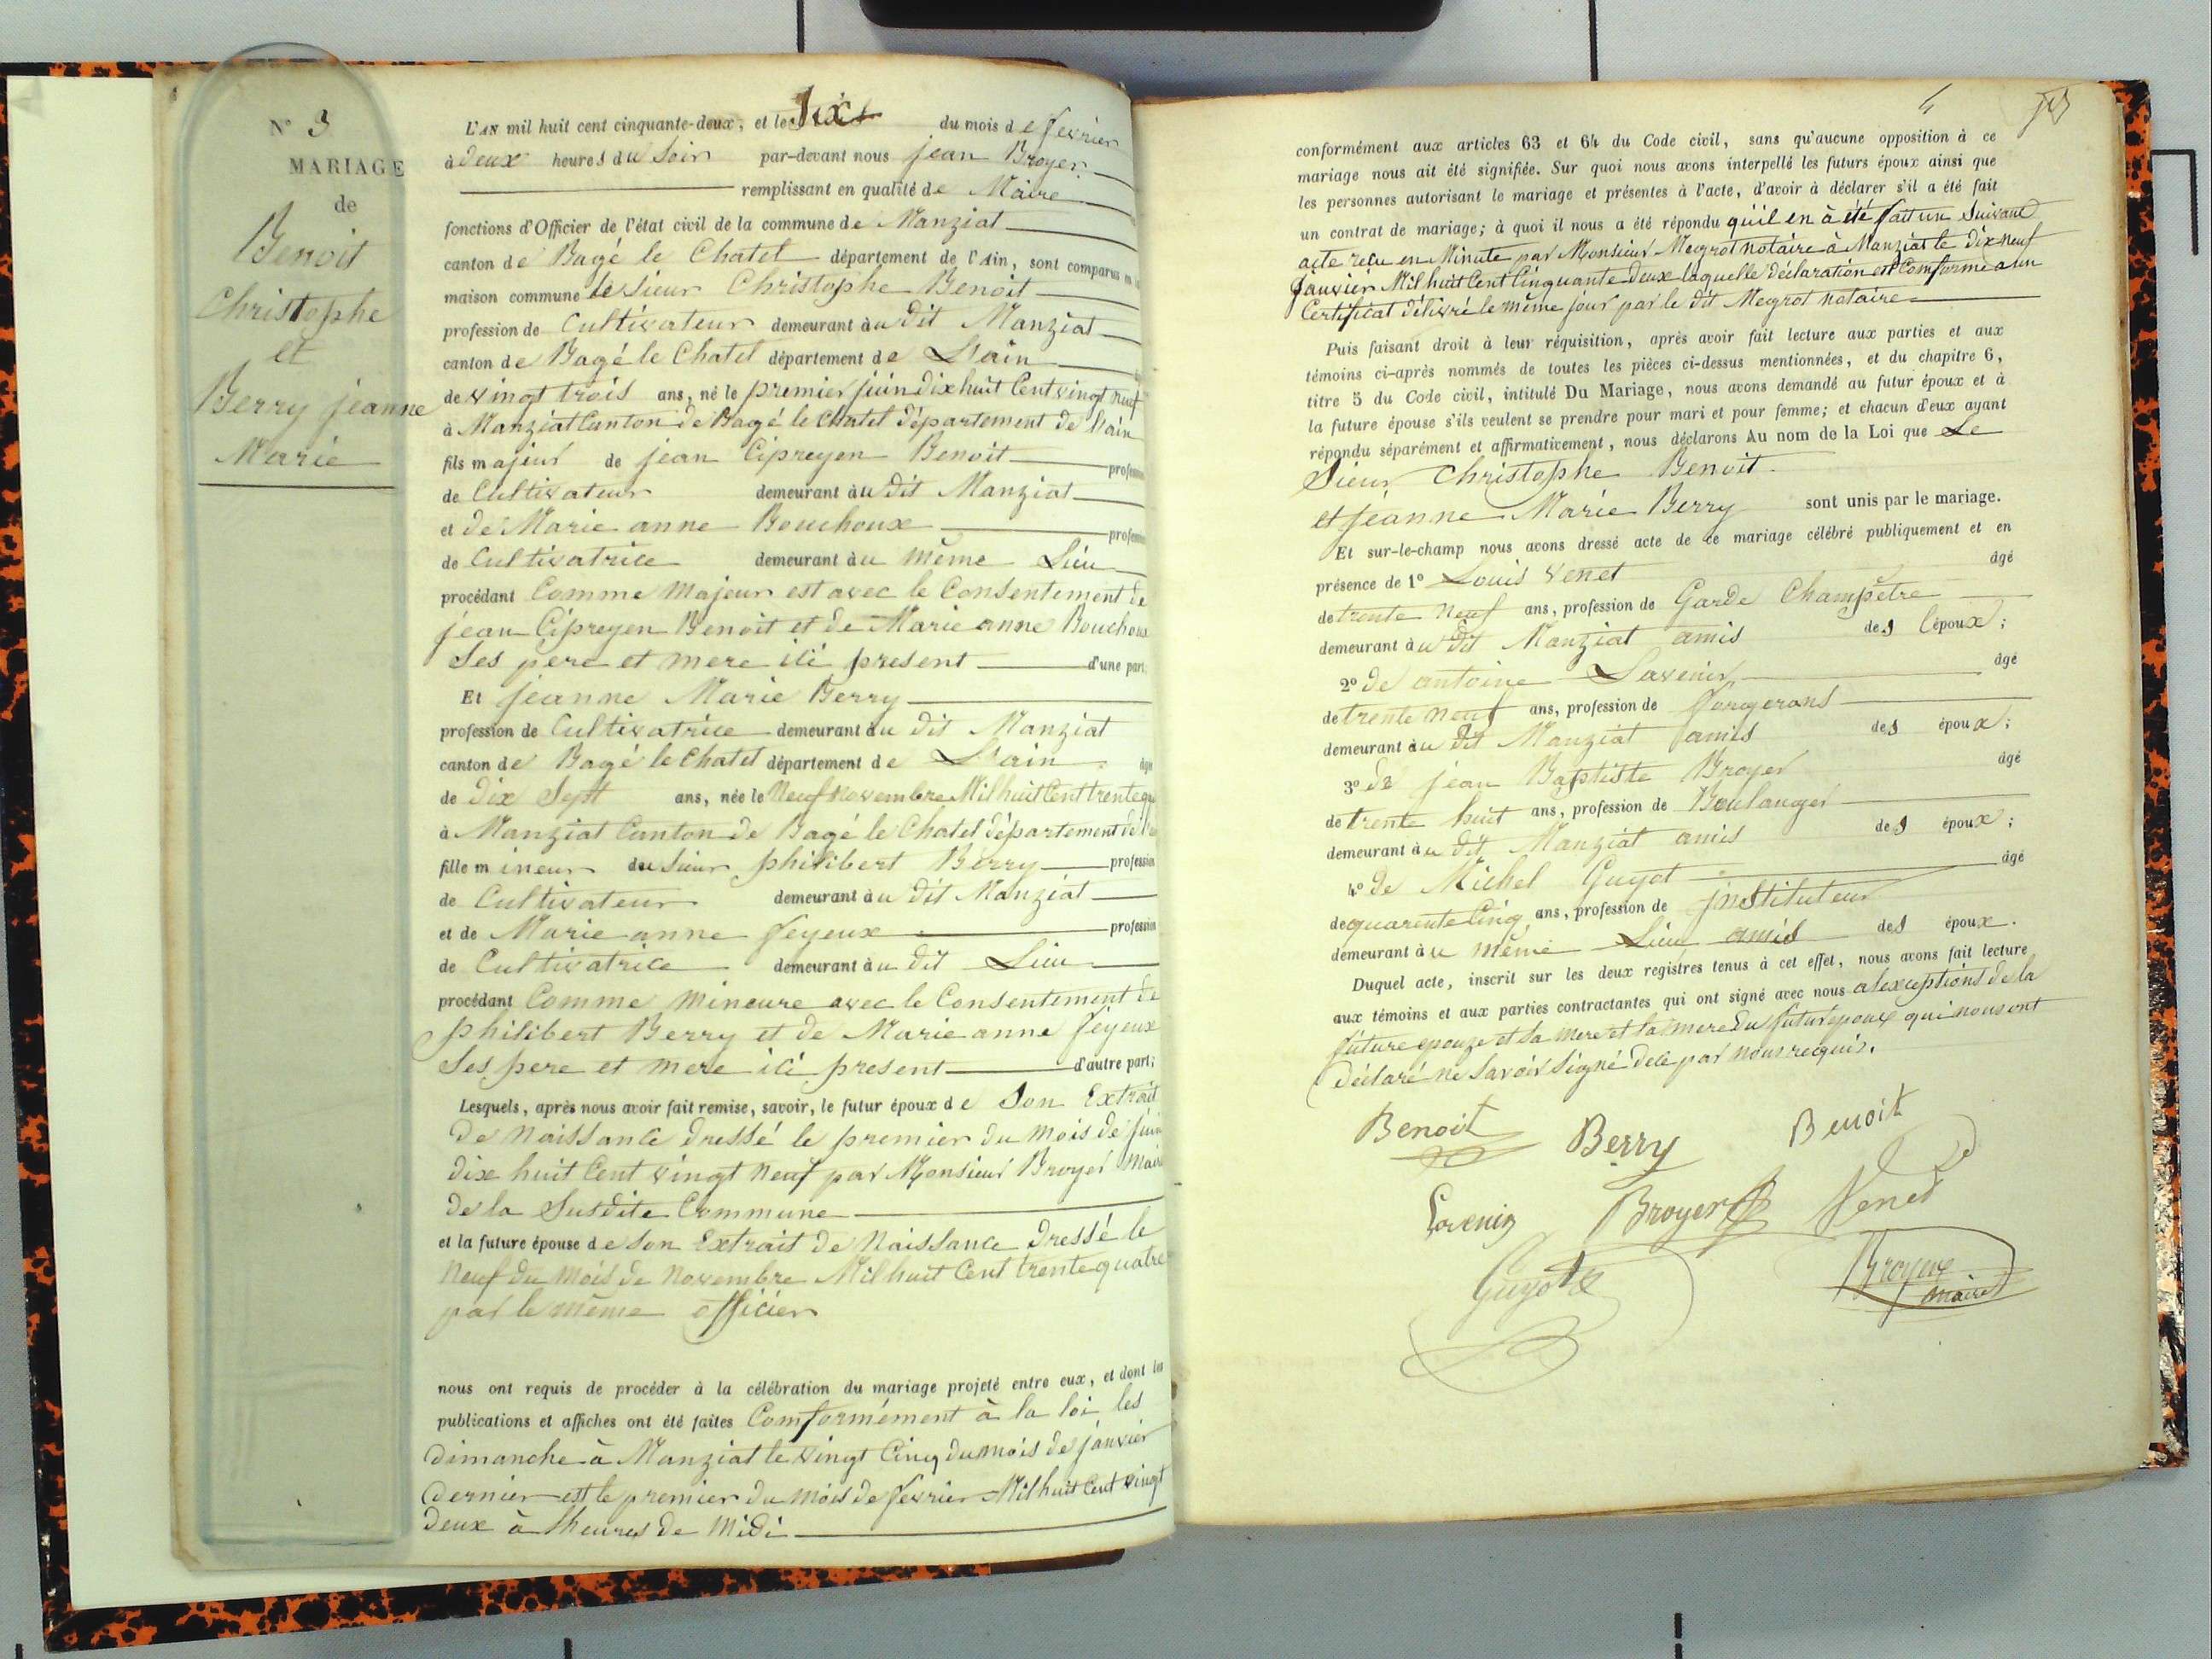 N° 3
MARIAGE
de
Benoit
Christophe
et
Berry jeanne
Marie
L'AN mil huit cent cinquante-deux, et le Six du mois de fevrier
à deux heures du Soir par-devant nous jean Broyer
remplissant en qualité de Maire
fonctions d'Officier de l'état civil de la commune de Manziat
canton de Bagé le Chatel département de l'Ain, sont comparus en la
maison commune le Sieur Christophe Benoit
profession de Cultivateur demeurant au dit Manziat
canton de Bagé le Chatel département de L'ain
de vingt trois ans, né le premier juin dix huit Cent vingt neuf
à Manziat Canton de Bagé le Chatel département de l'ain
fils majeur de jean Cipreyen Benoit profession
de Cultivateur demeurant au dit Manziat
et de Marie anne Bouchoux profession
de Cultivatrice demeurant au même Lieu
procédant Comme Majeur est avec le Consentement de
jean Cipreyen Benoit et de Marie anne Bouchoux
Ses pere et mere ici present d'une part;
Et jeanne Marie Berry
profession de Cultivatrice demeurant au dit Manziat
canton de Bagé le Chatel département de L'ain âgée
de dix Sept ans, née le Neuf Novembre Mil huit Cent trente qu
à Manziat Canton de Bagé le Chatel département de l'ain
fille mineur du Sieur philibert Berry profession
de Cultivateur demeurant au dit Manziat
et de Marie anne feyeux profession
de Cultivatrice demeurant au dit Lieu
procédant Comme mineure avec le Consentement de
philibert Berry et de Marie anne feyeux
Ses pere et mere ici present d'autre part;
Lesquels, après nous avoir fait remise, savoir, le futur époux de Son Extrait
de Naissance dressé le premier du mois de juin
dix huit Cent vingt neuf par Monsieur Broyer Maire
de la Susdite Commune
et la future épouse de Son Extrait de Naissance dressé le
Neuf du mois de Novembre Mil huit Cent trente quatre
par le même officier
nous ont requis de procéder à la célébration du mariage projeté entre eux, et dont les
publications et affiches ont été faites Comformément à la loi les
dimanche à Manziat le vingt Cinq du mois de janvier
dernier est le premier du mois de fevrier Mil huit Cent vingt
deux à heures de Midi
4
conformément aux articles 63 et 64 du Code civil, sans qu'aucune opposition à ce
mariage nous ait été signifiée. Sur quoi nous avons interpellé les futurs époux ainsi que
les personnes autorisant le mariage et présentes à l'acte, d'avoir à déclarer s'il a été fait
un contrat de mariage; à quoi il nous a été répondu qu'il en à été fait un Suivant
acte reçu en Minute par Monsieur Meyrot notaire à Manziat le dix neuf
janvier Mil huit Cent Cinquante deux laquelle déclaration est Comforme a un
Certificat délivré le même jour par le dit Meyrot notaire
Puis faisant droit à leur réquisition, après avoir fait lecture aux parties et aux
témoins ci-après nommés de toutes les pièces ci-dessus mentionnées, et du chapitre 6,
titre 5 du Code civil, intitulé Du Mariage, nous avons demandé au futur époux et à
la future épouse s'ils veulent se prendre pour mari et pour femme; et chacun d'eux ayant
répondu séparément et affirmativement, nous déclarons Au nom de la Loi que Le
Sieur Christophe Benoit
et jeanne Marie Berry sont unis par le mariage.
Et sur-le-champ nous avons dressé acte de ce mariage célébré publiquement et en
présence de 1° Louis Venet âgé
de trente neuf ans, profession de Garde Champêtre
demeurant au dit Manziat amis des l'époux;
2° de antoine Lavenir âgé
de trente neuf ans, profession de forgerons
demeurant au dit Manziat amis des époux;
3° de jean Baptiste Broyer âgé
de trente huit ans, profession de Boulanger
demeurant au dit Manziat amis des époux;
4° de Michel Guyot âgé
de quarente Cinq ans, profession de jnstituteur
demeurant au même Lieu amis des époux.
Duquel acte, inscrit sur les deux registres tenus à cet effet, nous avons fait lecture
aux témoins et aux parties contractantes qui ont signé avec nous alexceptions de la
future epouze et Sa mere et la mere du futur epoux qui nous ont
déclaré ne Savoir Signé dece par nous requis.
Benoit Berry Benoit
Lavenir Broyer Venet
Guyot Broyer
maire